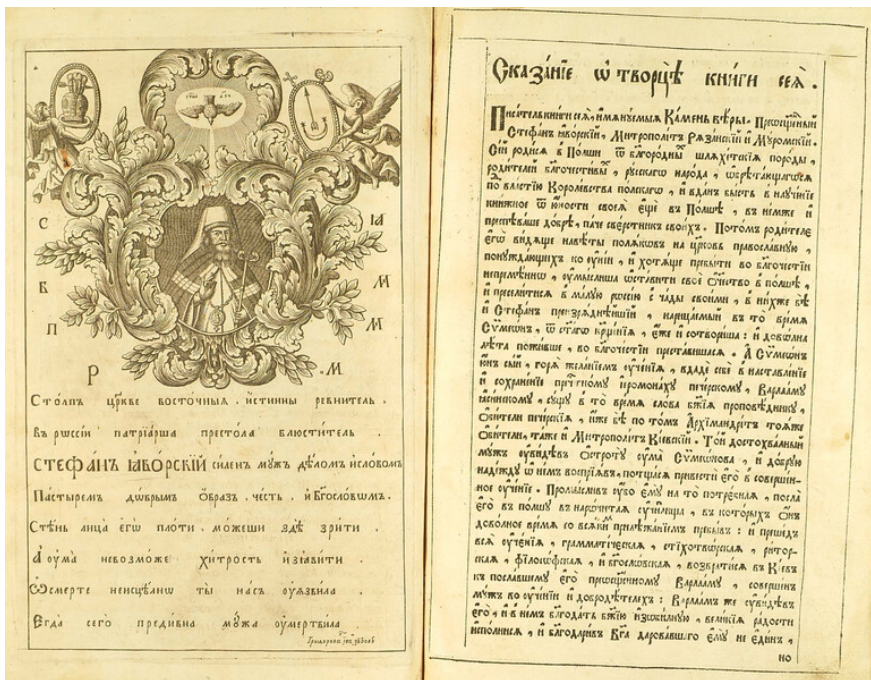 С ІА
В М
П М
Р М
Столпъ цр҃кве восточныѧ . и҆стинны ревнитель .
въ рѡссїи патрїа́рша престола блюстѝтель .
СТЕФА́НЪ ꙗ҆ВО́РСКЇЙ силенъ мꙋ́жъ дѣ́ломъ и҆ словомъ
Па́стыремъ дѡ́брымъ ѻ҆́браз . че́сть . и҆ бг҃осло́вѡмъ .
Стѣ́нь лица̀ є҆гѡ̀ пло́ти . мо́жеши здѣ̀ зрѣ́ти .
А҆ оу҆ма̀ невозмо́же хи́трость и҆з̾ѧви́ти
Ѽ сме́рте неисцѣ́лнѡ ты̀ на́съ оу҆ѧзви́ла .
Є҆гда̀ сего̀ преди́вна мꙋ́жа оу҆мертви́ла .
Сказа́нїе ѡ҆ творцѣ̀ кни́ги сеѧ̀ .
Писа́тель кни́ги сеѧ̀, и҆мѧнꙋ́емыѧ Ка́мень вѣ́ры . Прест҃ѡсщ҃е́нный
Стефа́нъ ꙗ҆во́рскїй, Митрополі́тъ Рѧза́нскїй и҆ Мꙋ́ромскїй .
Се́й роди́сѧ в По́лши ѿ бл҃горо́дны шлѧхе́тскїѧ поро́ды ,
роди́телей бл҃гочести́вы , рꙋ́сскагѡ наро́да , ѡ҆брѣта́ющагѡсѧ
по вла́стїю Короле́вства по́лскагѡ , и҆ вда́нъ бы́сть в наꙋче́нїе
кни́жное ѿ ю҆́ности своеѧ̀ є҆щѐ въ По́лшѣ , въ не́мже и҆
преспѣва́ше до́брѣ, па́че све́рстникъ свои́хъ . Пото́мъ роди́теле
є҆гѡ̀ ви́дѧще навѣ́ты полѧ́кѡвъ на цр҃ковь правосла́внꙋю ,
понꙋжда́ющихъ ко оу҆нї́и , и҆ хотѧ́ще пребы́ти во бл҃гоче́стїи
непремѣ́ннѡ , оу҆мы́слиша ѡ҆ста́вити своѐ ѻ҆те́чество в по́лшѣ ,
и҆ пресели́тисѧ в ма́лꙋю рѡссї́ю с ча́ды свои́ми , в ни́хже бѣ̀
и҆ Стефа́нъ презрѧ́днѣйшїй , нарица́емый въ то̀ вре́мѧ
Сѷмеѡ́нъ , ѿ ст҃а́гѡ крщ҃е́нїѧ , є҆́же и҆ сотвори́ша : и҆ дово́лна
лѣ́та пожи́вше , во бл҃гоче́стїи преста́вишасѧ . А҆ Сѷмеѡ́нъ
ю҆́нъ сы́й , горѧ̀ жела́нїемъ оу҆че́нїѧ , вдадѐ себѐ в наставле́нїе
и҆ сохране́нїе пречⷭ҇тномꙋ і҆еромона́хꙋ пече́рскомꙋ , Варлаа́мꙋ
ꙗ҆си́нскомꙋ , сꙋ́щꙋ в то̀ вре́мѧ сло́ва бж҃їѧ проповѣ́дникꙋ ,
ѻ҆би́тели пече́рскїѧ , и҆́же бѣ̀ по то́мъ А҆рхїмандрі́тъ то́ѧже
ѻ҆би́тели , та́же и҆ Митрополі́тъ Кі́евскїй . То́й достохва́лный
мꙋ́жъ оу҆ви́дѣвъ остротꙋ̀ оу҆ма̀ Сѷмеѡ́нова , и҆ до́брꙋю
наде́ждꙋ ѡ҆ не́мъ воспрїѧ́въ, потща́сѧ привестѝ є҆го̀ в соверше́н-
ное оу҆че́нїе . Промы́сливъ оу҆́бо є҆мꙋ̀ на то̀ потре́бнаѧ , посла̀
є҆го̀ въ по́лшꙋ в нарочи́таѧ оу҆чи́лища , въ кото́рыхъ ѻ҆́нъ
дово́лное вре́мѧ со всѧ́ки прилѣжа́нїемъ пребы́въ : и҆ преше́дъ
всѧ̀ оу҆че́нїѧ , граммати́ческаѧ , стїхотво́рскаѧ , ри́тор-
скаѧ , фїлосо́фскаѧ , и҆ бг҃осло́вскаѧ , возврати́сѧ въ Кі́евъ
къ посла́вшемꙋ є҆го̀ преѡсщ҃е́нномꙋ Варлаа́мꙋ , соверше́нъ
мꙋ́жъ во оу҆че́нїи и҆ добродѣ́телехъ : Варлаа́мъ же оу҆ви́дѣвъ
є҆го̀ , и҆ в не́мъ бл҃года́ть бж҃їю и҆зѻби́лнꙋю , вели́кїѧ ра́дости
и҆спо́лнисѧ , и҆ бл҃годари́въ Бг҃а дарова́вшаго є҆мꙋ̀ не є҆ди́нъ ,
но